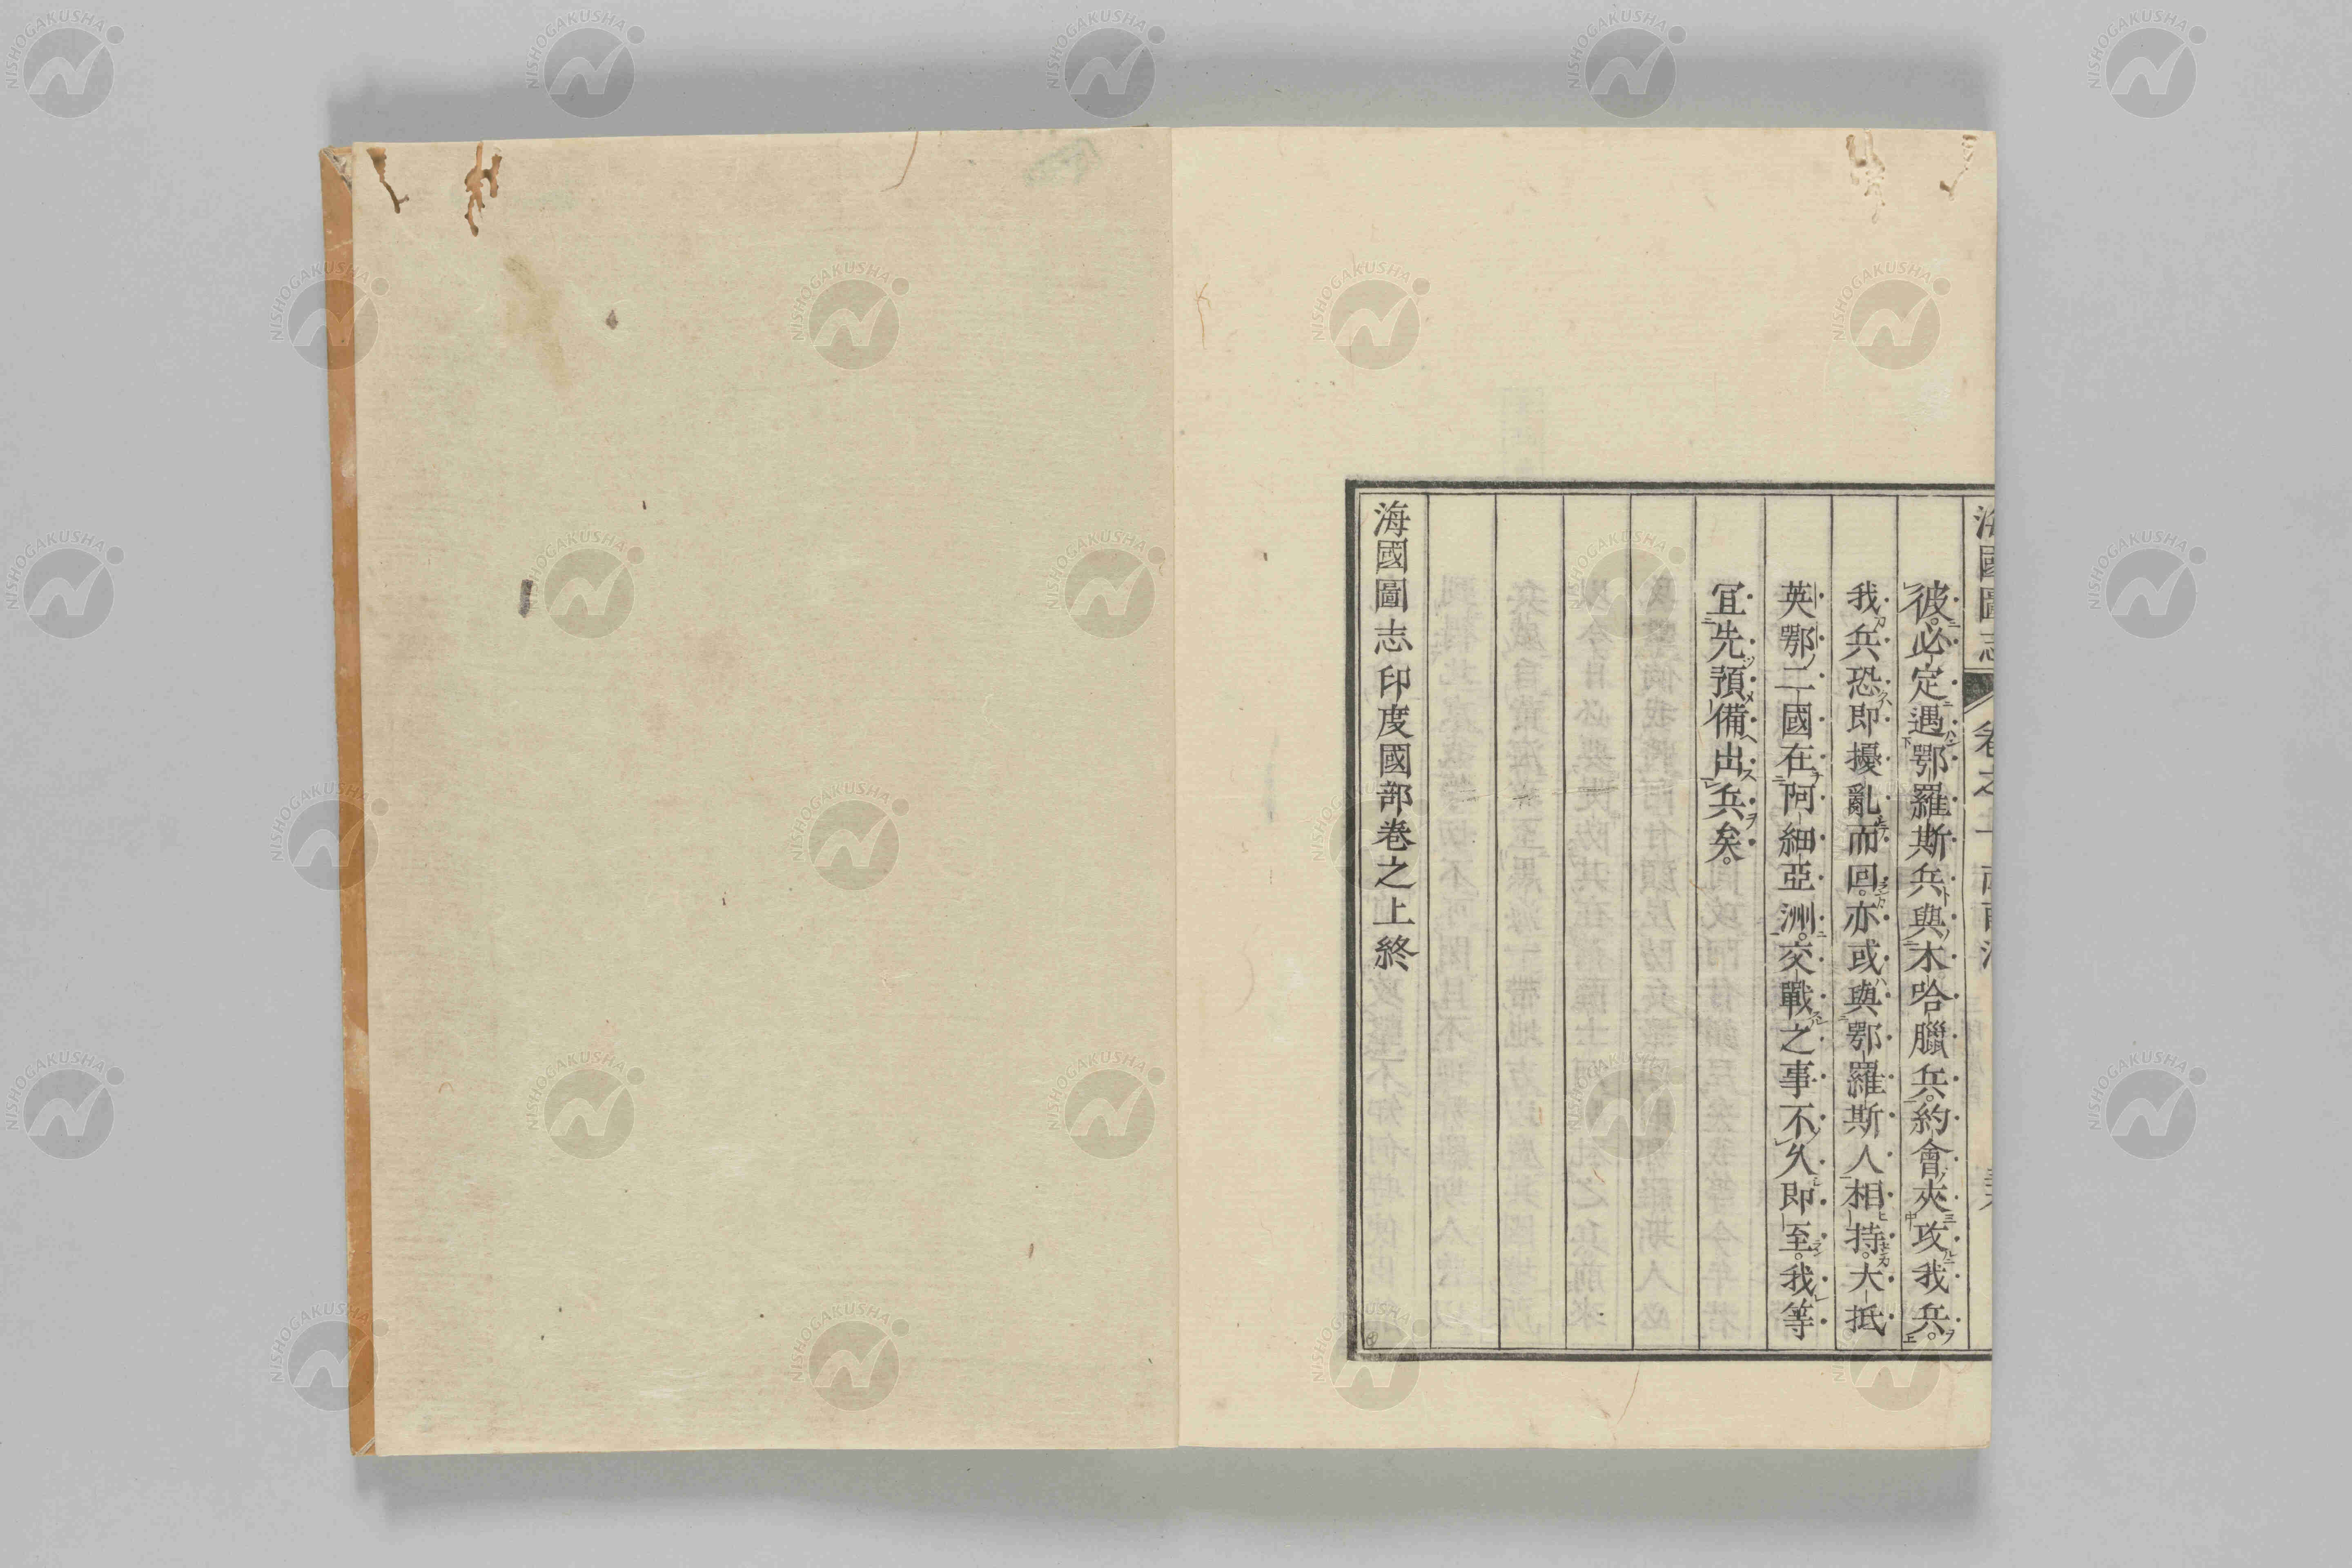 彼。必定遇鄂羅斯兵與木哈臘兵。約會夾攻我兵。
我兵恐即擾亂而回。亦或與鄂羅斯人相持。大抵
英鄂二國在阿細亞洲。交戰之事不久即至。我等
宜先預備出兵矣。
海國圖志印度國部卷之上終
NISHOGAKUSHA